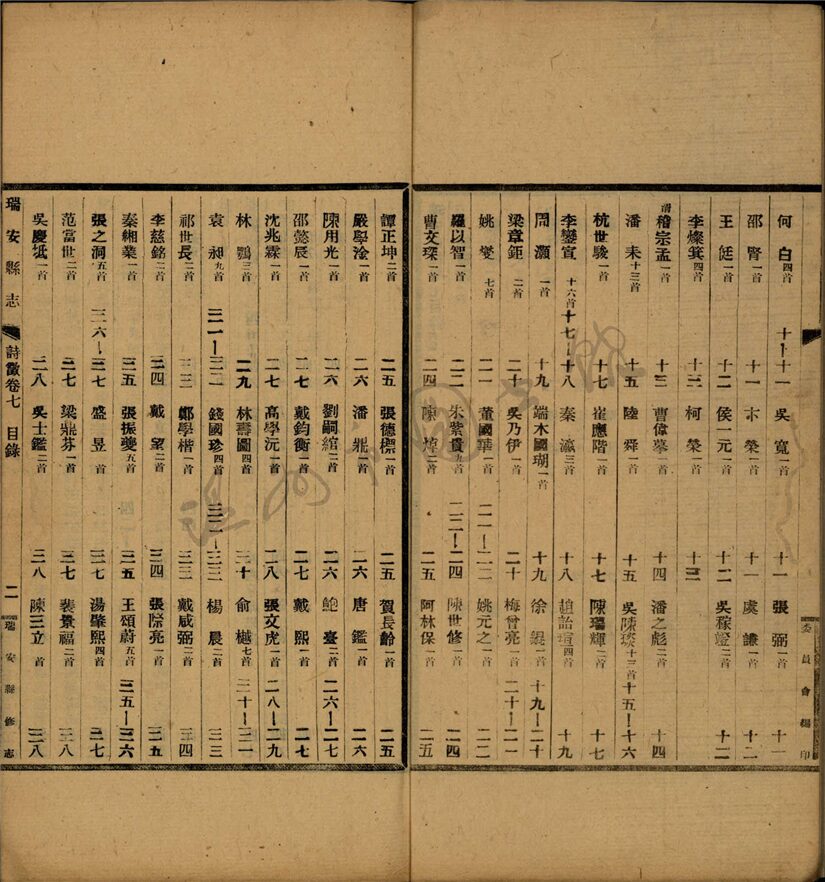 何　白四首　十—十一　吳　寬一首　十一　張　弼一首　十一
邵　賢一首　十一　卞　榮一首　十一　虞　謙一首　十二
王　侹一首　十二　侯一元一首　十二　吳稼竳二首　十三
李燦箕四首　十三　柯　榮一首　十三
清
稽宗孟一首　十三　曹偉謩一首　十四　潘之彪二首　十四
潘　耒十三首　十五　陸　舜一首　十五　吳陳琰十三首　十五—十六
杭世駿一首　十七　崔應階一首　十七　陳璚輝二首　十七
李鑾宣十六首　十七—十八　秦　瀛三首　十八　趙詒瑄四首　十九
周　灝一首　十九　端木國瑚一首　十九　徐　一首　十九—二十
梁章鉅二首　二十　吳乃伊一首　二十　梅曾亮二首　二十—二一
姚　燮七首　二一　董國華一首　二一—二二　姚元之一首　二二
羅以智一首　二二　朱紫貴九首　二二—二四　陳世修一首　二四
曹文㻞一首　二四　陳　焯三首　二五　阿林保一首　二五
譚正坤二首　二五　張德標一首　二五　賀長齡一首　二五
嚴學淦一首　二六　潘　鼎一首　二六　唐　鑑一首　二六
陳用光一首　二六　劉嗣綰二首　二六　鮑　臺三首　二六—二七
邵懿辰一首　二七　戴鈞衡一首　二七　戴　熙一首　二七
沈兆霖一首　二七　高學沅一首　二八　張文虎一首　二八—二九
林　鶚三首　二九　林壽圖四首　三十　俞　樾七首　三十—三一
袁　昶九首　三一—三二　錢國珍四首　三二—三三　楊　晨二首　三三
祁世長二首　三三　鄭學楷一首　三三　戴咸弼二首　三四
李慈銘二首　三四　戴　望二首　三四　張際亮一首　三五
秦緗業一首　三五　張振夔五首　三五　王頌蔚五首　三五—三六
張之洞五首　三六—三七　盛　昱一首　三七　湯肇熙四首　三七
范富世二首　三七　梁鼎芬一首　三七　裴景福二首　三八
吳慶坻一首　三八　吳士鑑二首　三八　陳三立一首　三八
瑞安縣志　詩徵卷七　目錄　二　瑞安縣修志
委員會編印